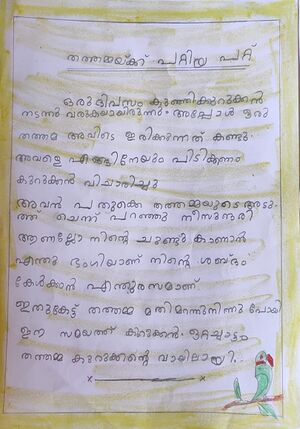 തത്തമ്മയ്ക്ക് പറ്റിയ പറ്റ്
ഒരു ദിവസം കുഞ്ഞിക്കുറുക്കൻ
നടന്നു വരുകയായിരുന്നു. അപ്പോൾ ഒരു
തത്തമ്മ അവിടെ ഇരിക്കുന്നത് കണ്ടു.
അവളെ എങ്ങിനേയും പിടിക്കണം
കുറുക്കൻ വിചാരിച്ചു
അവൻ പതുക്കെ തത്തമ്മയുടെ അടു
ത്ത് ചെന്ന് പറഞ്ഞു നീ സുന്ദരി
ആണല്ലോ നിന്റെ ചുണ്ടു കാണാൻ
എന്തു ഭംഗിയാണ് നിന്റെ ശബ്ദം
കേൾക്കാൻ എന്തുരസമാണ്.
ഇതുകേട്ട് തത്തമ്മ മതിമറന്നുനിന്നു പോയി
ഈ സമയത്ത് കുറുക്കൻ ഒറ്റച്ചാട്ടം
തത്തമ്മ കുറുക്കന്റെ വായിലായി..